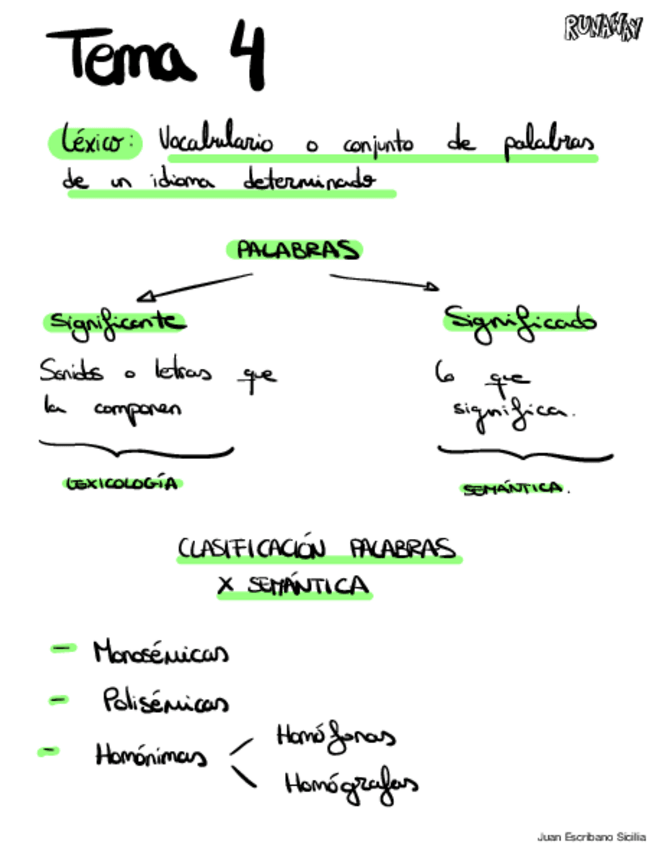 Tema 4
RUNAWAY
Léxico: Vocabulario o conjunto de palabras
de un idioma determinado
PALABRAS
Significante
Significado
Sonidos o letras que
la componen
lo que
significa.
LEXICOLOGÍA
SEMÁNTICA.
CLASIFICACIÓN PALABRAS
X SEMÁNTICA
- Monosémicas
- Polisémicas
- Homónimas
Homófonas
Homógrafas
Juan Escribano Sicilia